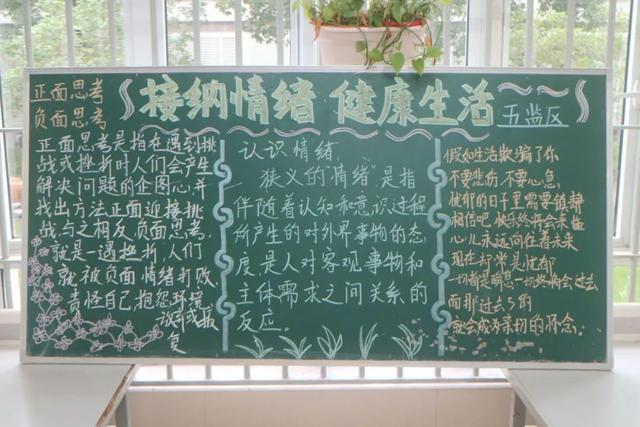 接纳情绪 健康生活
五监区
正面思考
负面思考
正面思考是指在遇到挑
战或挫折时人们会产生
解决问题的企图心,并
找出方法正面迎接挑
战,与之相反,负面思考,
就是一遇挫折,人们
就被负面情绪打败,
责怪自己,抱怨环境,
复
认识情绪
狭义的"情绪",是指
伴随着认知和意识过程
所产生的对外界事物的态
度,是人对客观事物和
主体需求之间关系的
反应。
假如生活欺骗了你
不要悲伤,不要心急,
忧郁的日子里需要镇静
相信吧,快乐终将会来临
心儿永远向往着未来
现在却常是忧郁
一切都是瞬息,一切终将会过去
而那过去了的
就会成为亲切的怀念。